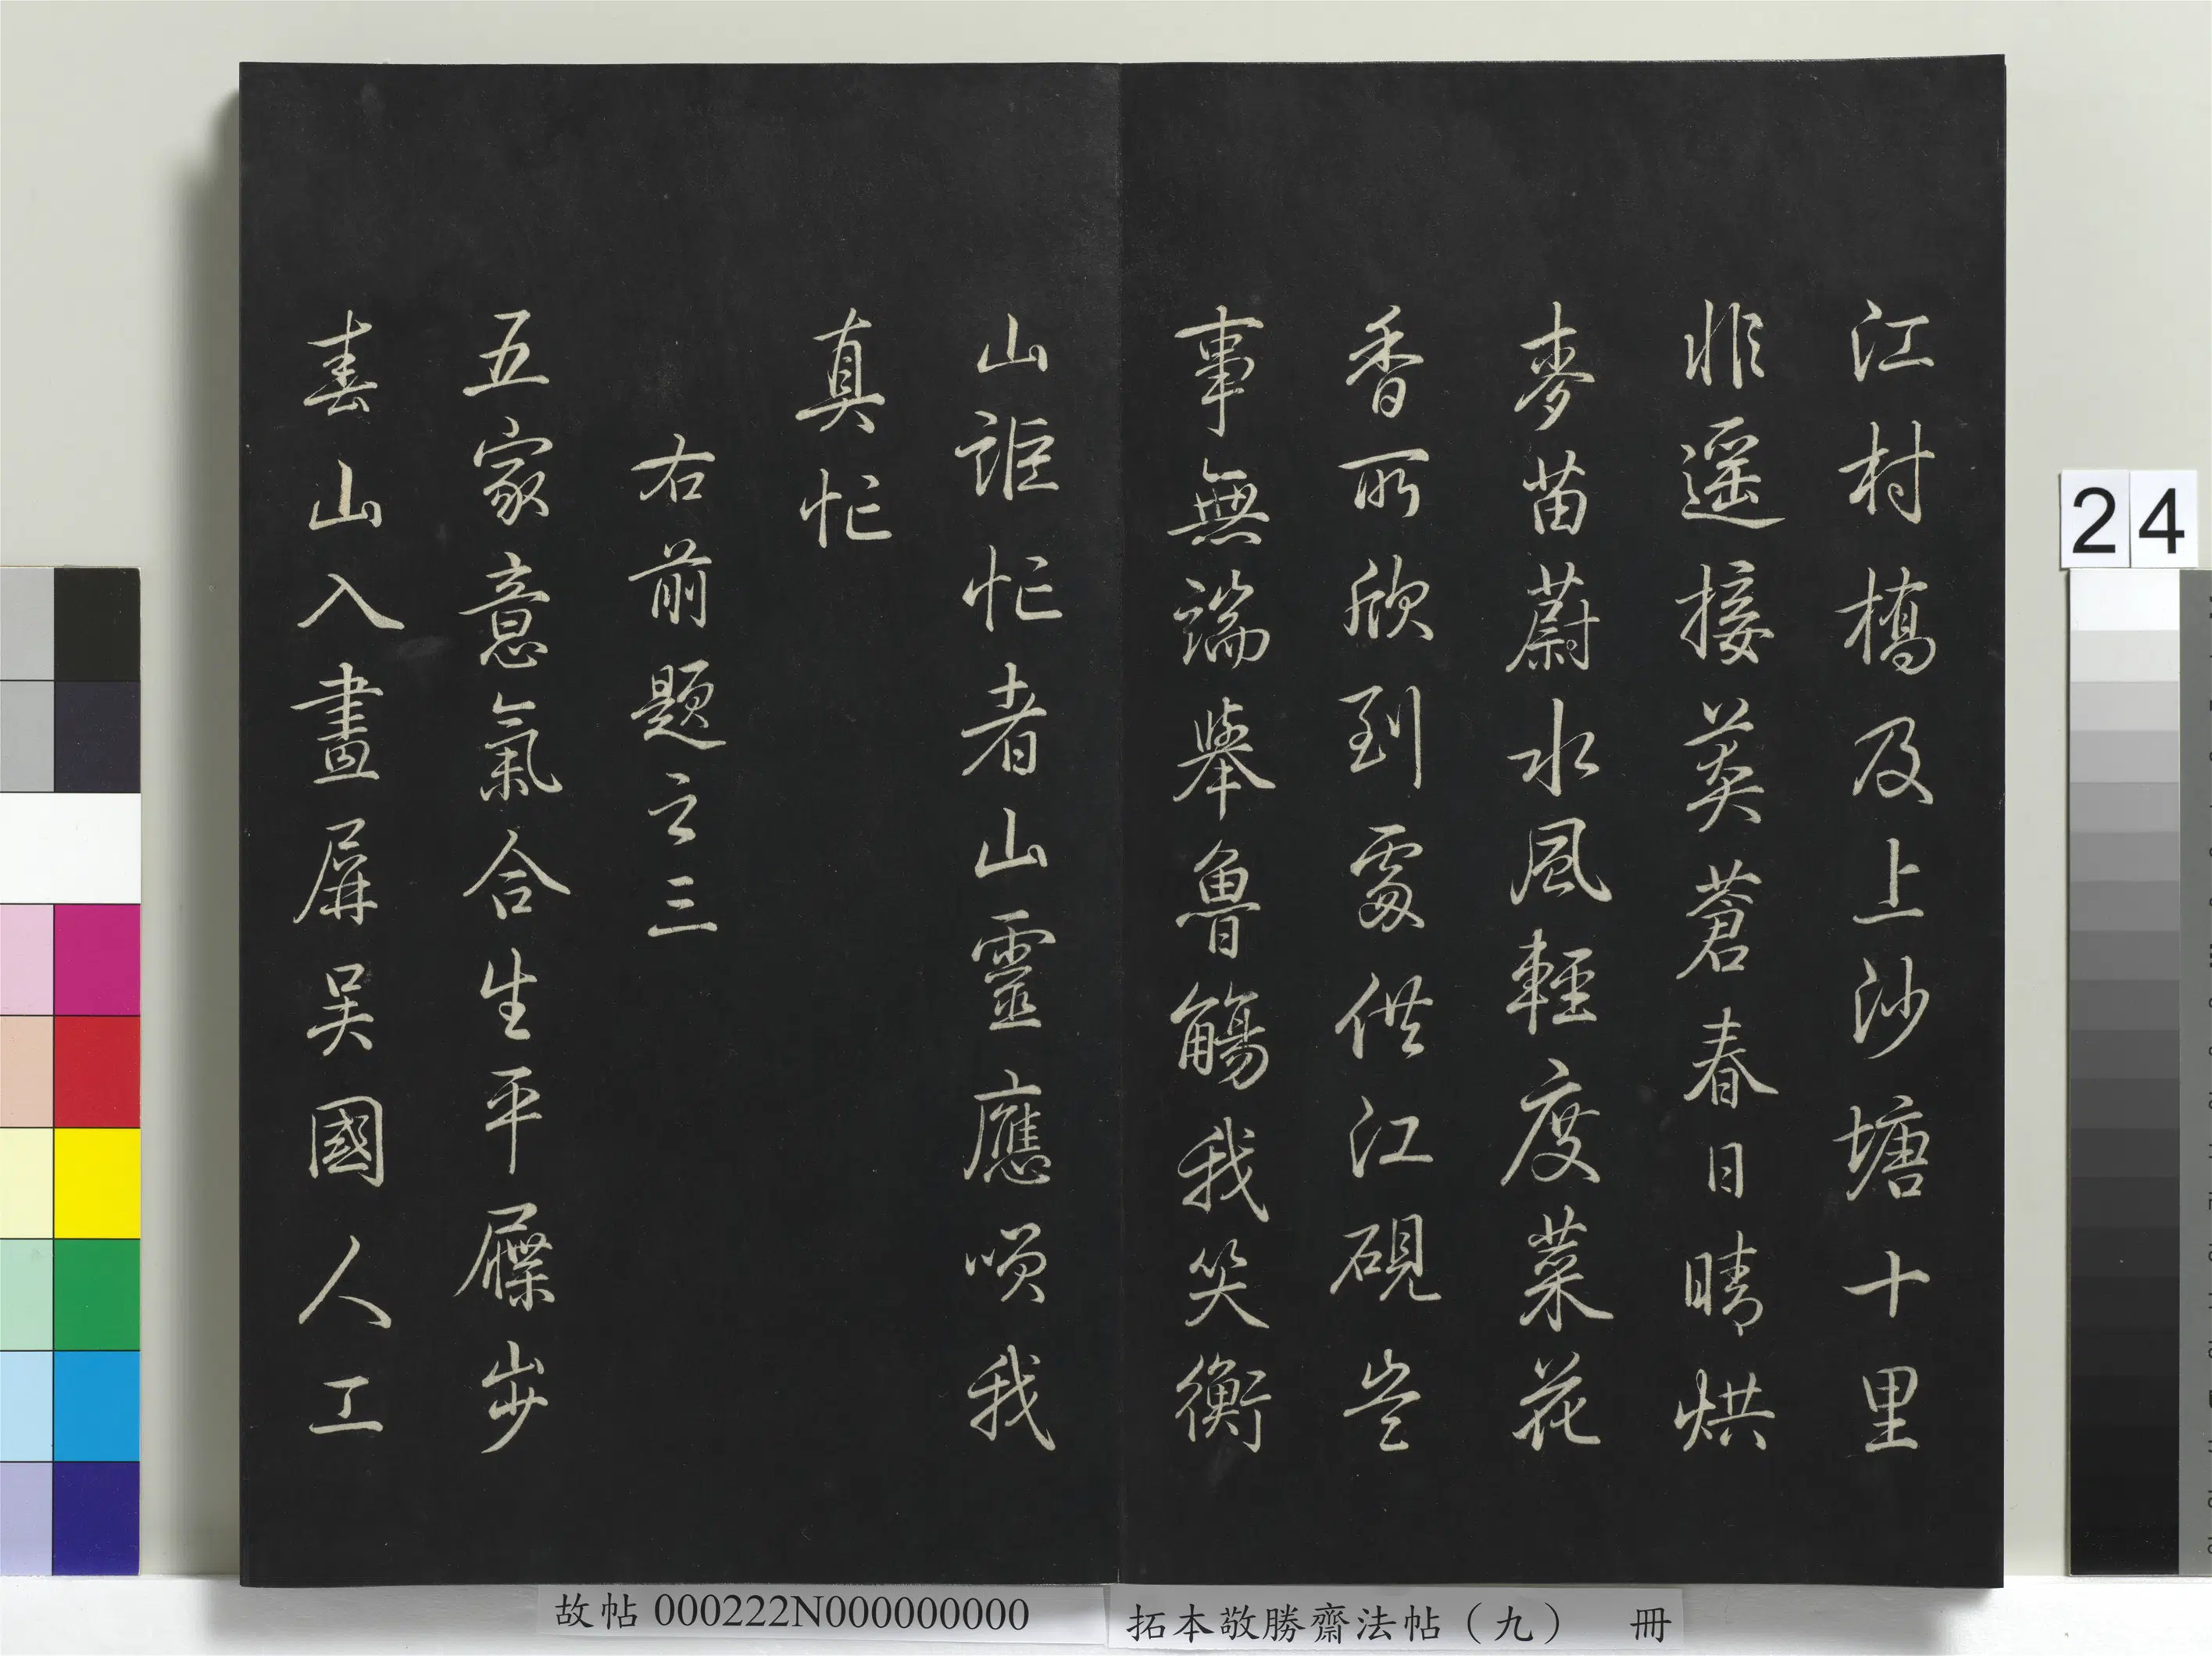 江村橋及上沙塘十里
非遥接莽蒼春日晴烘
麥苗蔚水風輕度菜花
香所欣到處供江硯豈
事無端舉魯觴我笑衡
山誰忙者山靈應咲我
真忙
右前題之三
五家意氣合生平屧步
春山入畫屏吳國人工
24
故帖 000222N000000000
拓本敬勝齋法帖（九） 冊